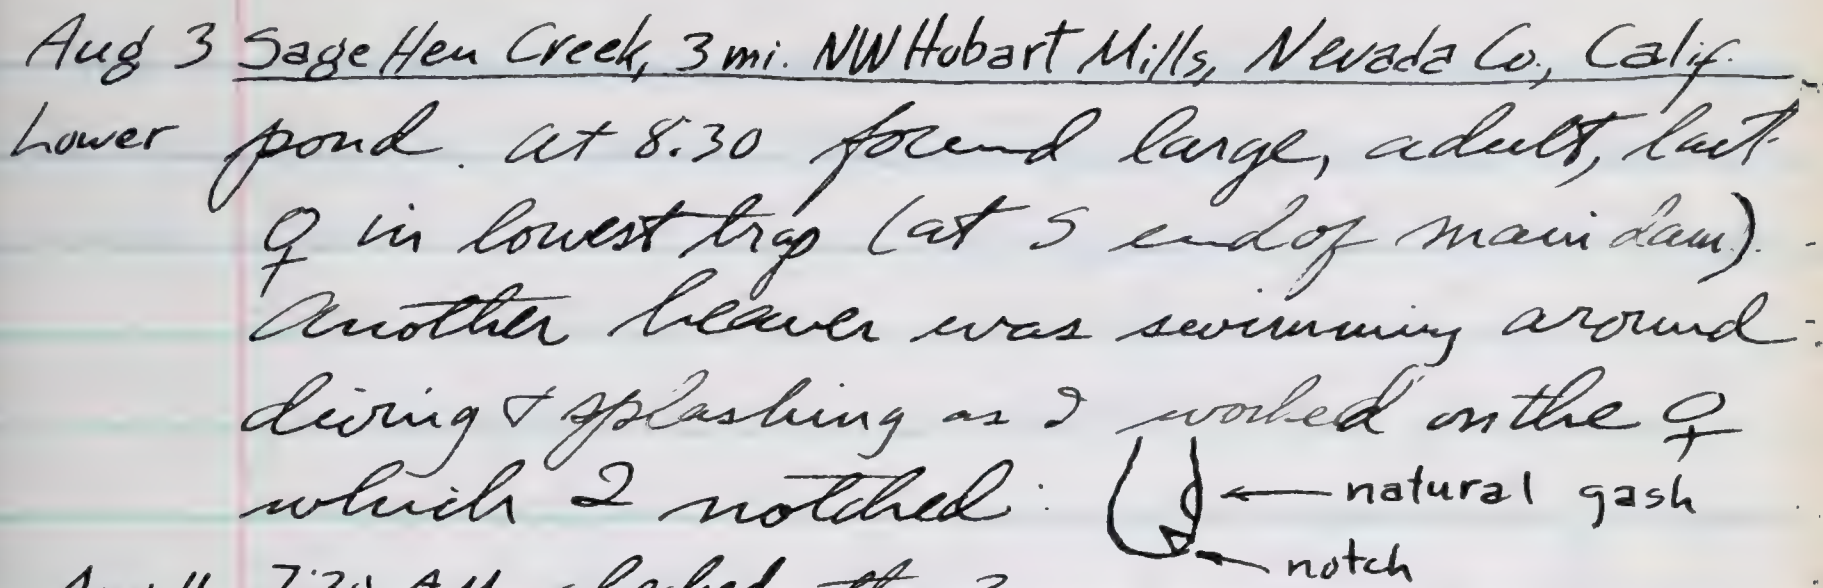 Aug 3 Sage Hen Creek, 3 mi. NW Hobart Mills, Nevada Co., Calif.
Lower pond. at 8:30 found large, adult, lact.
♀ in lowest trap (at S end of main dam).
Another beaver was swimming around
diving & splashing as I worked on the ♀
which I notched:
natural gash
notch
7:30 AM checked the